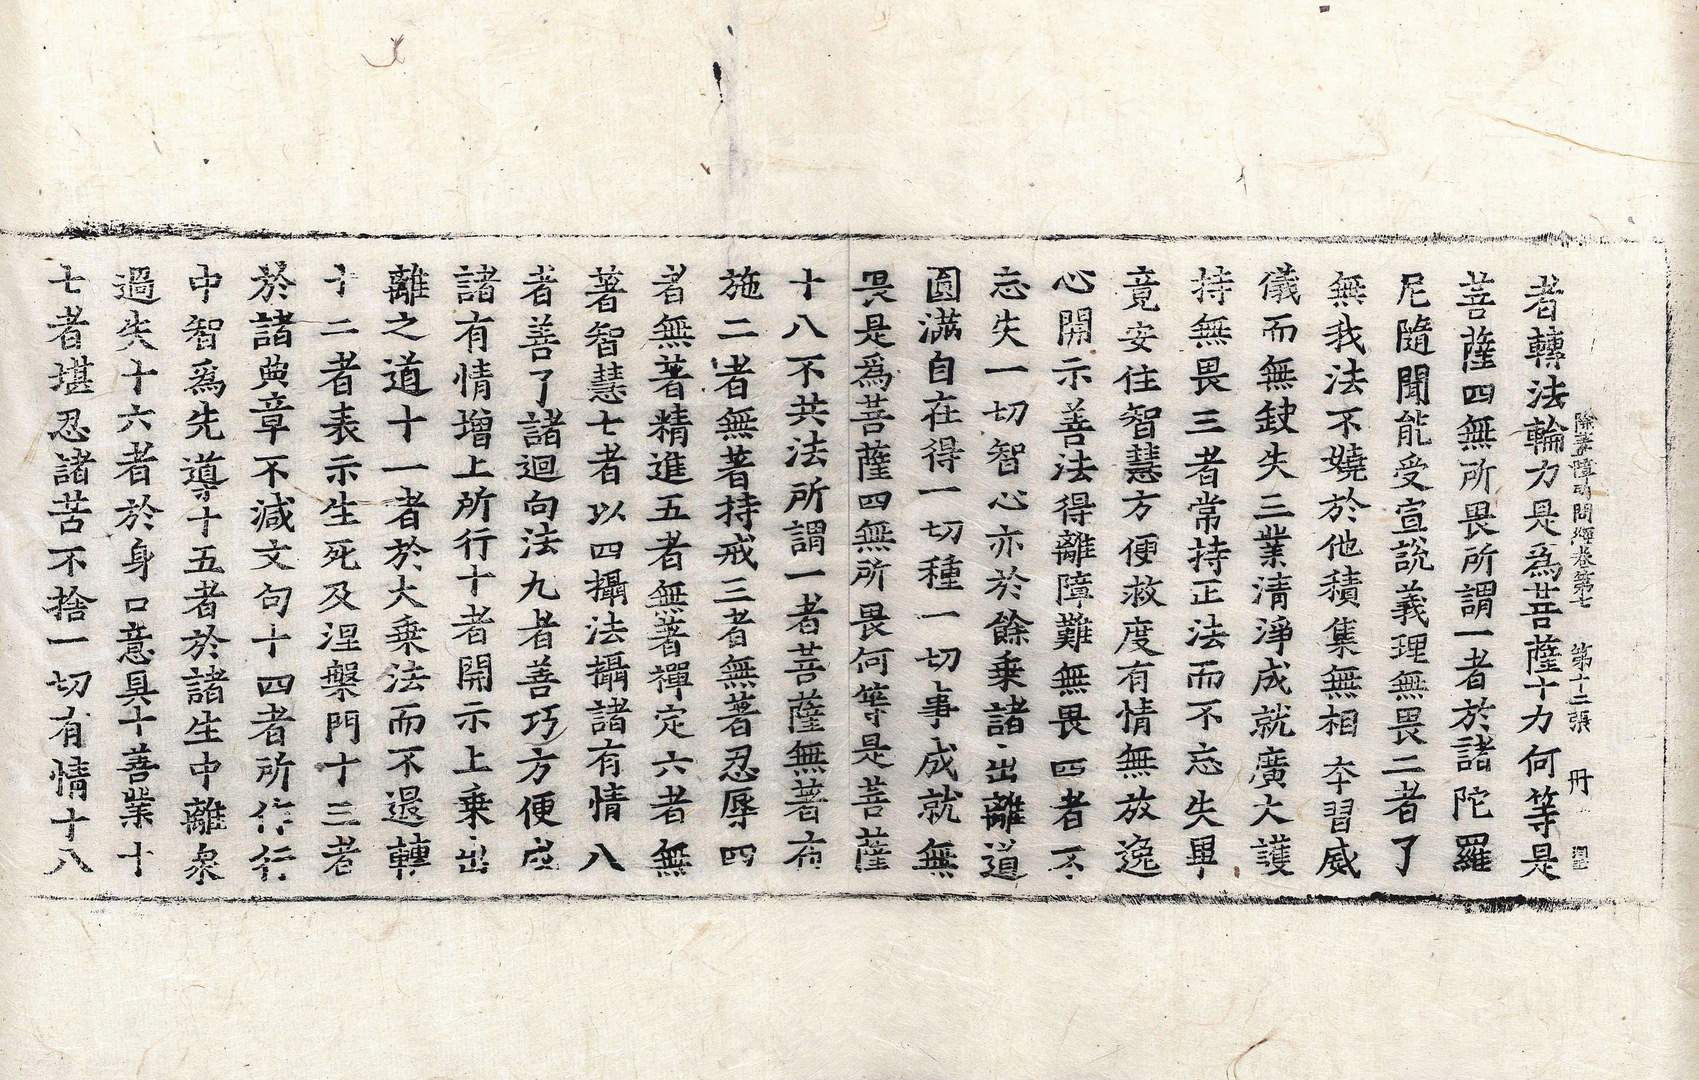 除蓋障所問經卷第七 第十二張 冊
者轉法輪力是爲菩薩十力何等是
菩薩四無所畏所謂一者於諸陀羅
尼隨聞能受宣說義理無畏二者了
無我法不嬈於他積集無相本習威
儀而無鈌失三業清淨成就廣大護
持無畏三者常持正法而不忘失畢
竟安住智慧方便救度有情無放逸
心開示善法得離障難無畏四者不
忘失一切智心亦於餘乘諸出離道
圓滿自在得一切種一切事成就無
畏是爲菩薩四無所畏何等是菩薩
十八不共法所謂一者菩薩無著布
施二者無著持戒三者無著忍辱四
者無著精進五者無著禪定六者無
著智慧七者以四攝法攝諸有情八
者善了諸迴向法九者善巧方便成
諸有情增上所行十者開示上乘出
離之道十一者於大乘法而不退轉
十二者表示生死及涅槃門十三者
於諸典章不減文句十四者所作行
中智爲先導十五者於諸生中離衆
過失十六者於身口意具十善業十
七者堪忍諸苦不捨一切有情十八